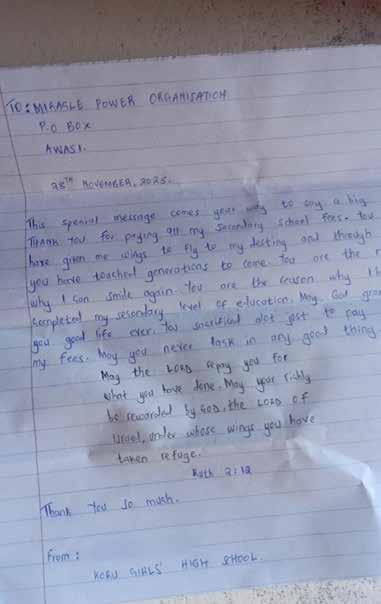 TO: MIRACLE POWER ORGANISATION
P.O BOX
AWASI.
28TH NOVEMBER, 2025.
This special message comes your way to say a big
THANK YOU for paying all my secondary school fees. You
have given me wings to fly to my destiny and through
you have touched generations to come. You are the r
why I can smile again. You are the reason why I h
completed my secondary level of education. May God gran
you good life ever. You sacrificed alot just to pay
my fees. May you never lask in any good thing
May the LORD repay you for
what you have done. May your richly
be rewarded by GOD, the LORD OF
Israel, under whose wings you have
taken refuge.
Ruth 2:12
Thank you so much.
From:
KORU GIRLS' HIGH SHOOL.